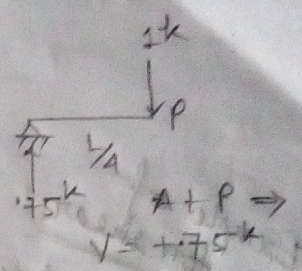 1k
P
L/4
.75k
At P ⇒
V = +.75k